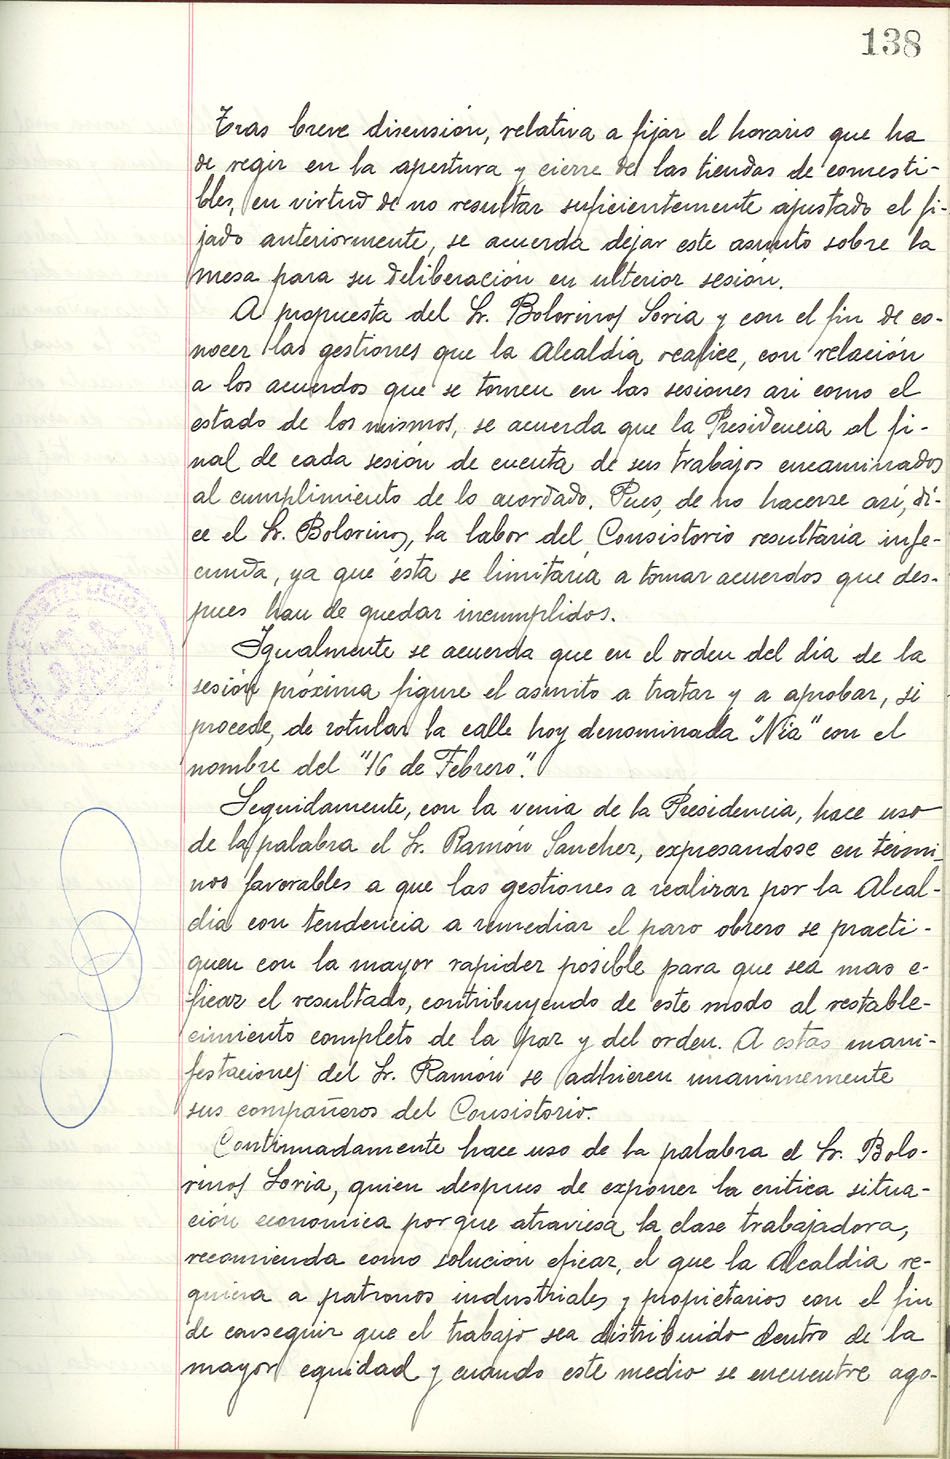 138
Tras breve discusión, relativa a fijar el horario que ha
de regir en la apertura y cierre de las tiendas de comesti-
bles, en virtud de no resultar suficientemente ajustado el fi-
jado anteriormente, se acuerda dejar este asunto sobre la
mesa para su deliberación en ulterior sesión.
A propuesta del Sr. Bolorinos Soria y con el fin de co-
nocer las gestiones que la Alcaldía realice, con relación
a los acuerdos que se tomen en las sesiones asi como el
estado de los mismos, se acuerda que la Presidencia al fi-
nal de cada sesión de cuenta de sus trabajos encaminados
al cumplimiento de lo acordado. Pues, de no hacerse asi, di-
ce el Sr. Bolorinos, la labor del Consistorio resultaría infe-
cunda, ya que ésta se limitaría a tomar acuerdos que des-
pues han de quedar incumplidos.
Igualmente se acuerda que en el orden del dia de la
sesión próxima figure el asunto a tratar y a aprobar, si
procede, de rotular la calle hoy denominada "Nía" con el
nombre del "16 de Febrero".
Seguidamente, con la venia de la Presidencia, hace uso
de la palabra el Sr. Ramón Sanchez, expresandose en térmi-
nos favorables a que las gestiones a realizar por la Alcal-
día con tendencia a remediar el paro obrero se practi-
quen con la mayor rapidez posible para que sea mas e-
ficaz el resultado, contribuyendo de este modo al restable-
cimiento completo de la paz y del orden. A estas mani-
festaciones del Sr. Ramón se adhieren unanimemente
sus compañeros del Consistorio.
Continuadamente hace uso de la palabra el Sr. Bolo-
rinos Soria, quien despues de exponer la critica situa-
ción economica porque atraviesa la clase trabajadora,
recomienda como solución eficaz, el que la Alcaldía re-
quiera a patronos industriales y propietarios con el fin
de conseguir que el trabajo sea distribuido dentro de la
mayor equidad y cuando este medio se encuentre ago-